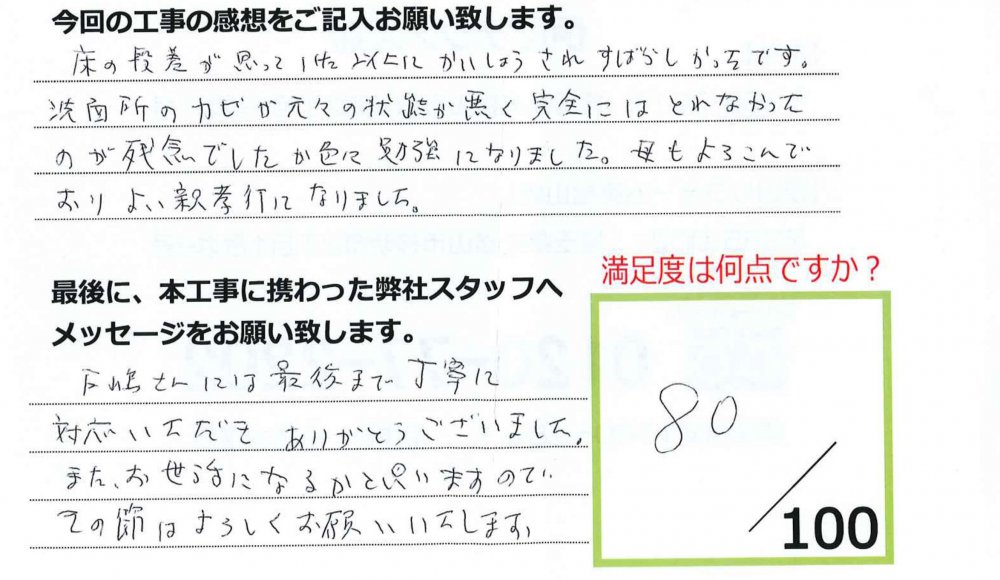 今回の工事の感想をご記入お願い致します。
床の段差が思っていた以上にかいしょうされすばらしかったです。
洗面所のカビが元々の状態が悪く完全にはとれなかった
のが残念でしたが色々勉強になりました。母もよろこんで
おりよい親孝行になりました。
最後に、本工事に携わった弊社スタッフへ
メッセージをお願い致します。
満足度は何点ですか？
さんには最後まで丁寧に
対応いただき ありがとうございました。
また、お世話になるかと思いますので
その節はよろしくお願いいたします。
80
/100